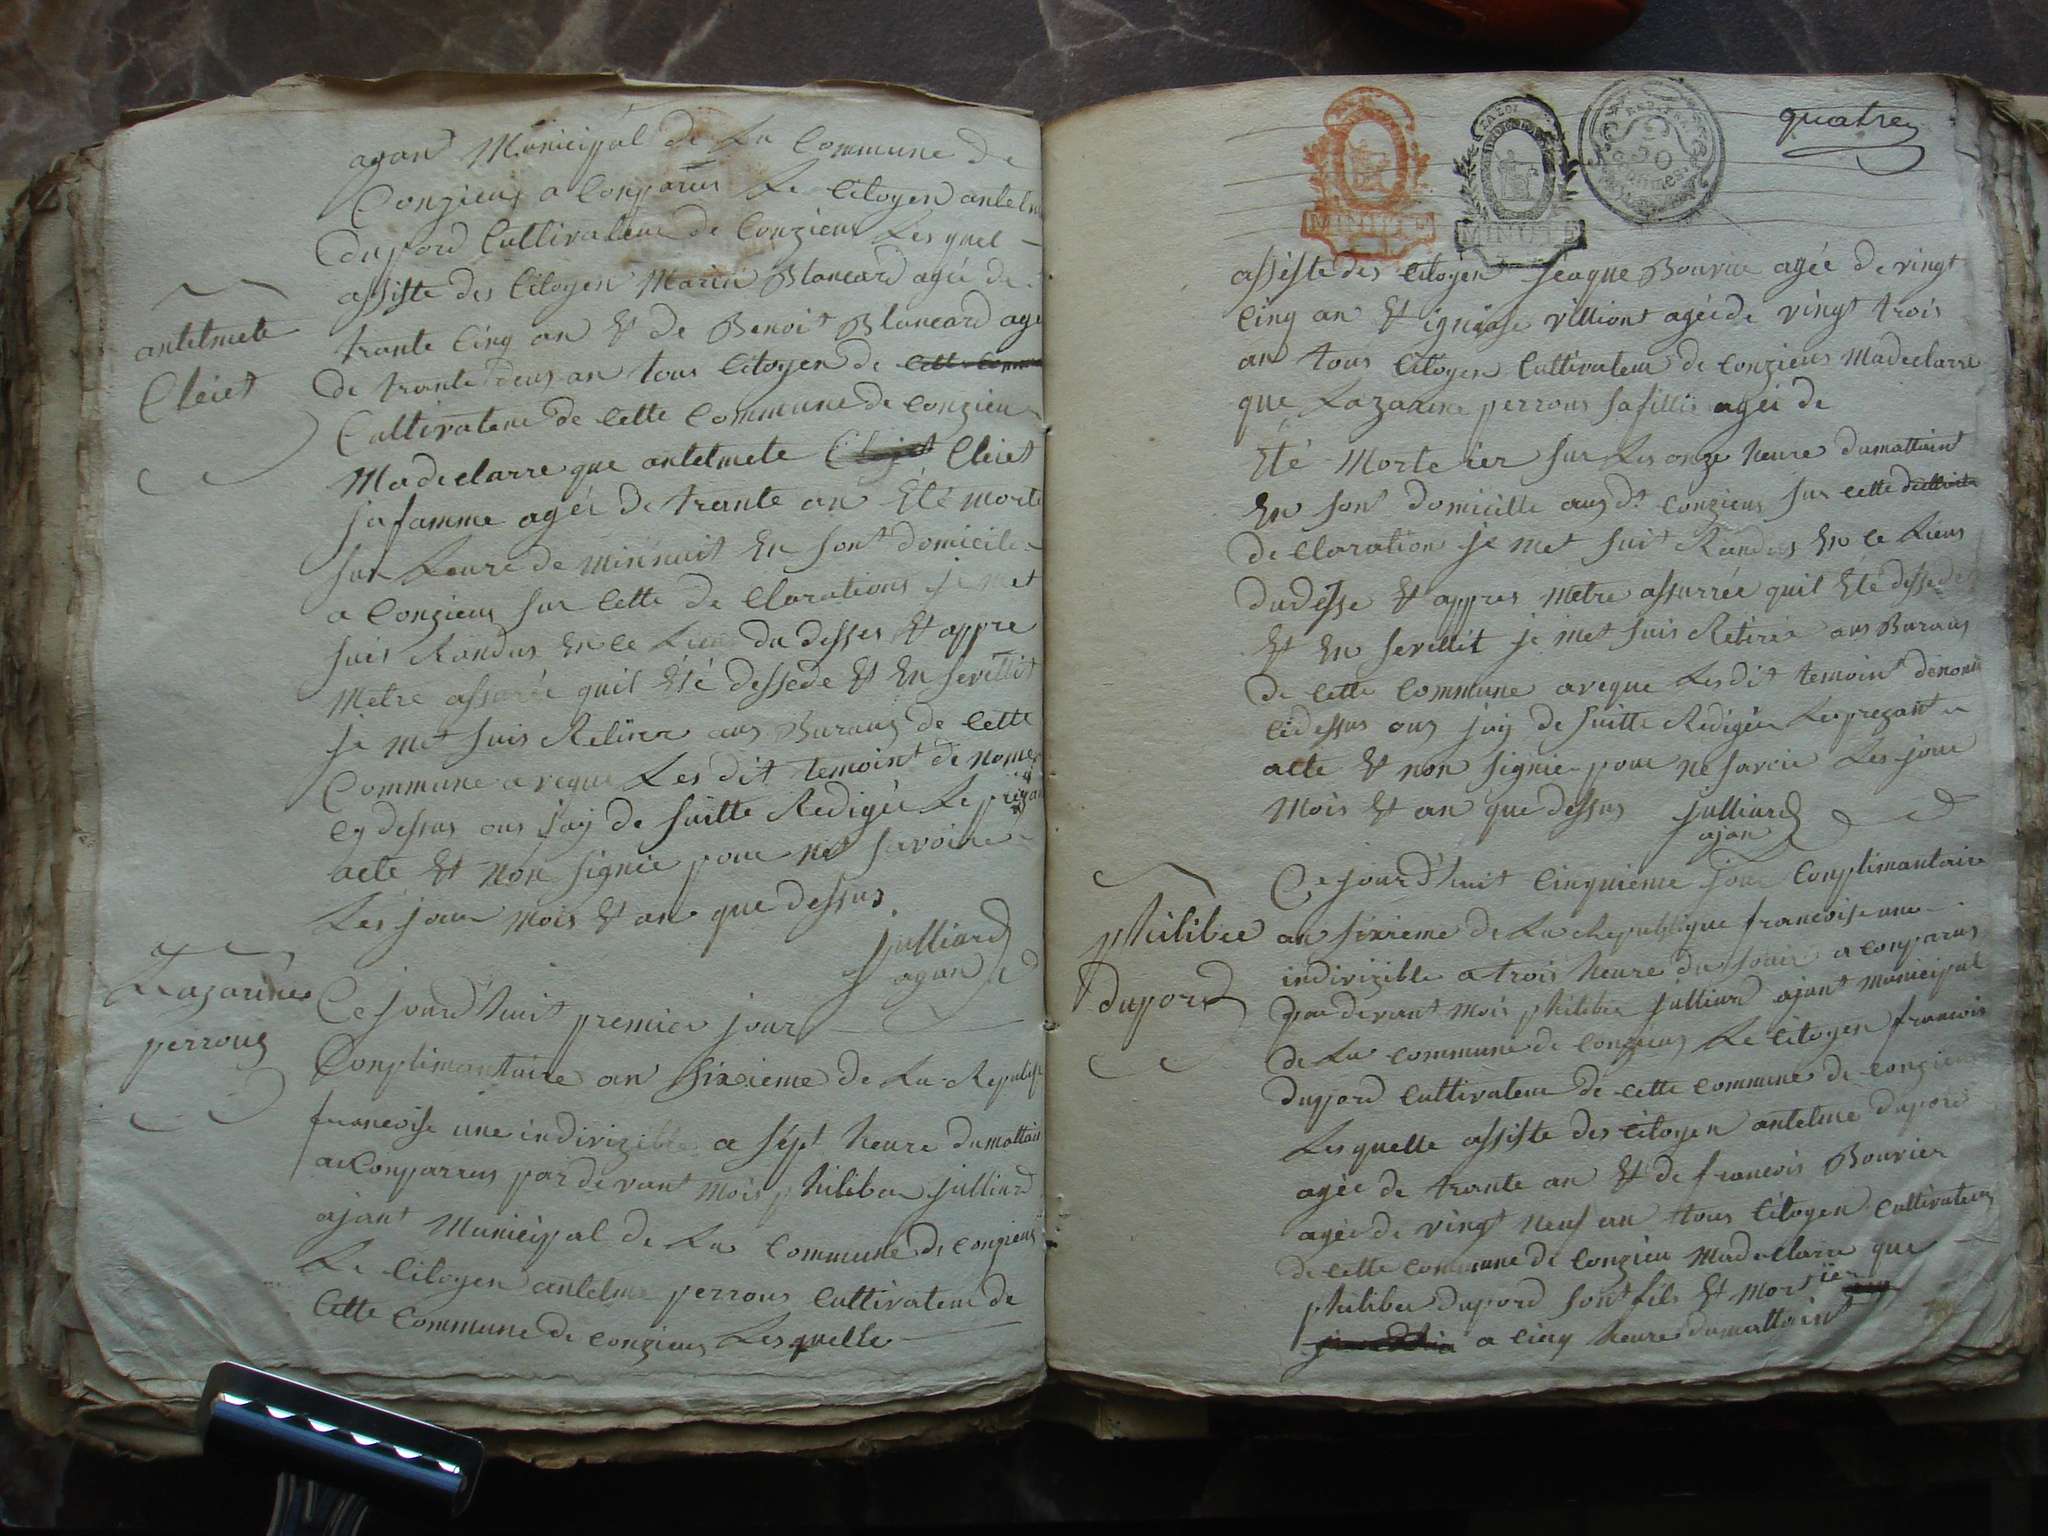 agant Municipal de La Commune de
Conzieux a Conparus Le Citoyen antelme
dupord Cultivateur de Conzieux Lesquel
assiste des Citoyen Marin Blancard agée de
antelmete
Cleiet
trante Cinq an Et de Benoit Blancard agé
de trante deux an tous Citoyen de cette Commune
Cultivateur de Cette Commune de Conzieu
Madeclarre que antelmete Cleiet
sa famme agéi de trante an Eté morte
sur Leure de Minnuit En sont domicile
a Conzieux sur Cette de Clarations je met
suis Randus En ce Lieu du desses Et appre
Metre assurée quil Eté dessede Et En sevellit
je met suis Retirer aux Buraux de Cette
Commune a veque Les dit temoint de nomer
Cy dessus ous jay de suitte Redigée Le prezant
acte Et non signie pour net savoire
Les jour mois Et an que dessus
julliard
agan
Lazarine
perroux
Ce jourd'huit premier jour
Conplimantaire an sixieme de La Republique
francoise une indivizible a sept heure du mattain
a Conparrus par devant Mois philiber julliard
ajant Municipal de La Commune de Conzieux
Le Citoyen antelme perroux Cultivateur de
Cette Commune de Conzieux Lesquelle
quatre
MINUTE
MINUTE
50
assiste des Citoyen jeaque Bouvier agée de vingt
Cinq an Et igniase villiont agée de vingt trois
an tous Citoyen Cultivateur de Conzieux Madeclarre
que Lazarine perroux sa fillie agéi de
Eté Morte ier sur Les onze heure dumattaint
En sont domicille aux dt Conzieux sur cette
de Claration je met suit Randus En ce Lieux
du desse Et appres Metre assurrée quil Eté dessede
Et En sevellit je met suis Retirée aux Buraux
de Cette Commune aveque Les dit temoint denomé
Cidessus oux jay de suitte Redigée Leprezant
acte Et non signie pour ne savoir Les jour
Mois Et an que dessus julliard
ajan
philiber
dupord
Ce jourd'huit Cinquieme jour Conplimantaire
an sixieme de La Republique francoise une
indivizible a trois heure du soair a Conparus
par devant Mois philiber julliard ajant Municipal
de La Commune de Conzieux Le Citoyen francois
dupord Cultivateur de Cette Commune de Conzieux
Lesquelle assiste des Citoyen antelme dupord
agée de trante an Et de francois Bouvier
agée de vingt neuf an tous Citoyen Cultivateur
de Cette Commune de Conzieu Madeclarre que
philiber dupord sont fils Et Mort ier
a Cinq heure dumattaint